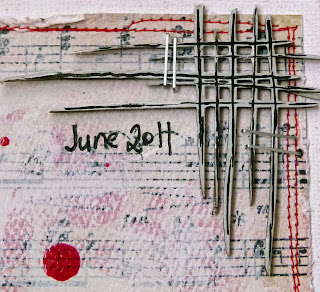 June 2011